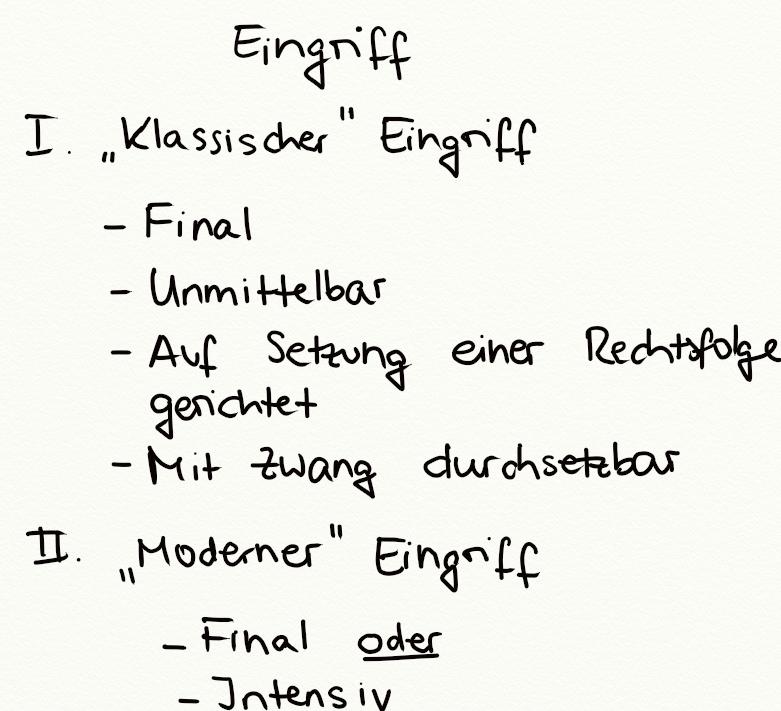 Eingriff
I. „Klassischer" Eingriff
- Final
- Unmittelbar
- Auf Setzung einer Rechtsfolge
gerichtet
- Mit Zwang durchsetzbar
II. „Moderner" Eingriff
- Final oder
- Intensiv